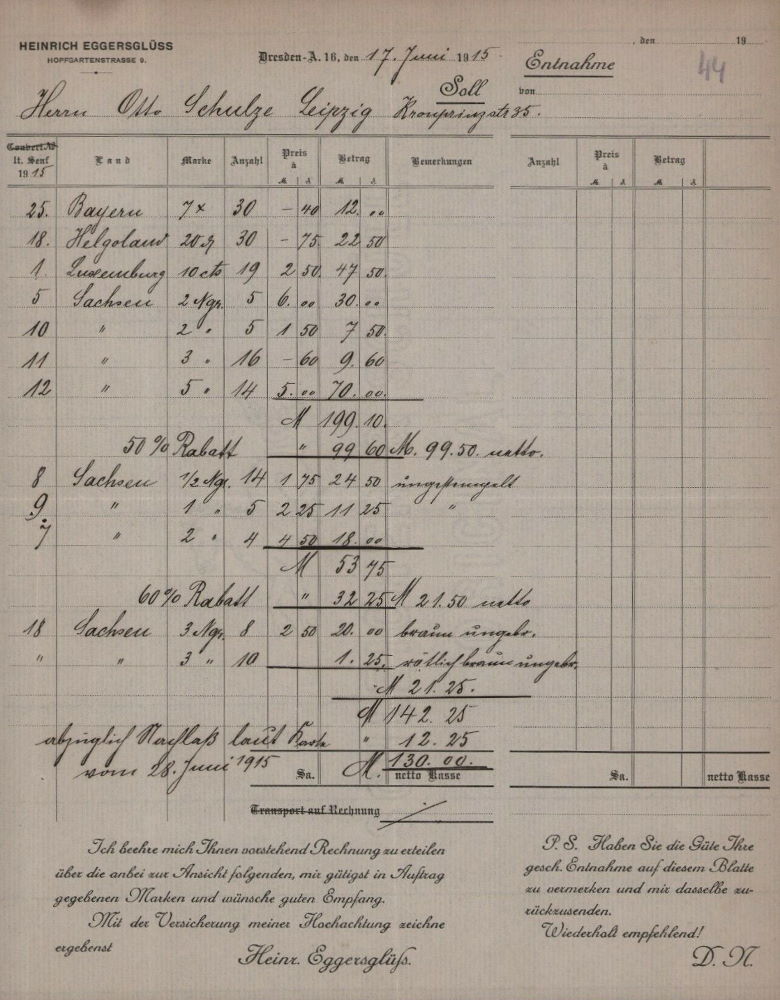 HEINRICH EGGERSGLÜSS
HOFFGARTENSTRASSE 9.
Dresden-A. 16, den 17. Juni 1915.
Soll
Herrn Otto Schulze Leipzig Kronprinzstr 35.
, den 19
Entnahme 44
von
Convert. №
lt. Senf
1915
Land Marke Anzahl Preis à M ₰ Betrag M ₰ Bemerkungen
Anzahl Preis à M ₰ Betrag M ₰
25. Bayern 7 x 30 – 40 12. 00
18. Helgoland 20 ₰ 30 – 75. 22 50
1. Luxemburg 10 cts 19 2 50. 47 50.
5 Sachsen 2 Ngr. 5 6. 00 30. 00
10 " 2 " 5 1 50 7 50.
11 " 3 " 16 – 60 9. 60
12 " 5 " 14 5. 00 70. 00.
M 199. 10.
50 % Rabatt " 99 60 M. 99.50. netto.
8 Sachsen 1/2 Ngr. 14 1 75 24 50 ungestempelt
9. " 1 " 5 2 25 11 25 "
7 " 2 " 4 4 50 18. 00
M 53 75
60 % Rabatt " 32 25 M 21.50 netto
18 Sachsen 3 Ngr. 8 2 50 20. 00 braun ungebr.
" " 3 " 10 1. 25. rötlichbraun ungebr.
M 21. 25.
M 142. 25
abzüglich Nachlaß laut Karte " 12. 25
vom 28. Juni 1915 Sa. M. 130. 00. netto Kasse
Sa. netto Kasse
Transport auf Rechnung
Ich beehre mich Ihnen vorstehend Rechnung zu erteilen
über die anbei zur Ansicht folgenden, mir gütigst in Auftrag
gegebenen Marken und wünsche guten Empfang.
Mit der Versicherung meiner Hochachtung zeichne
ergebenst
Heinr. Eggersglüß.
P. S. Haben Sie die Güte Ihre
gesch. Entnahme auf diesem Blatte
zu vermerken und mir dasselbe zu-
rückzusenden.
Wiederholt empfehlend!
D. N.